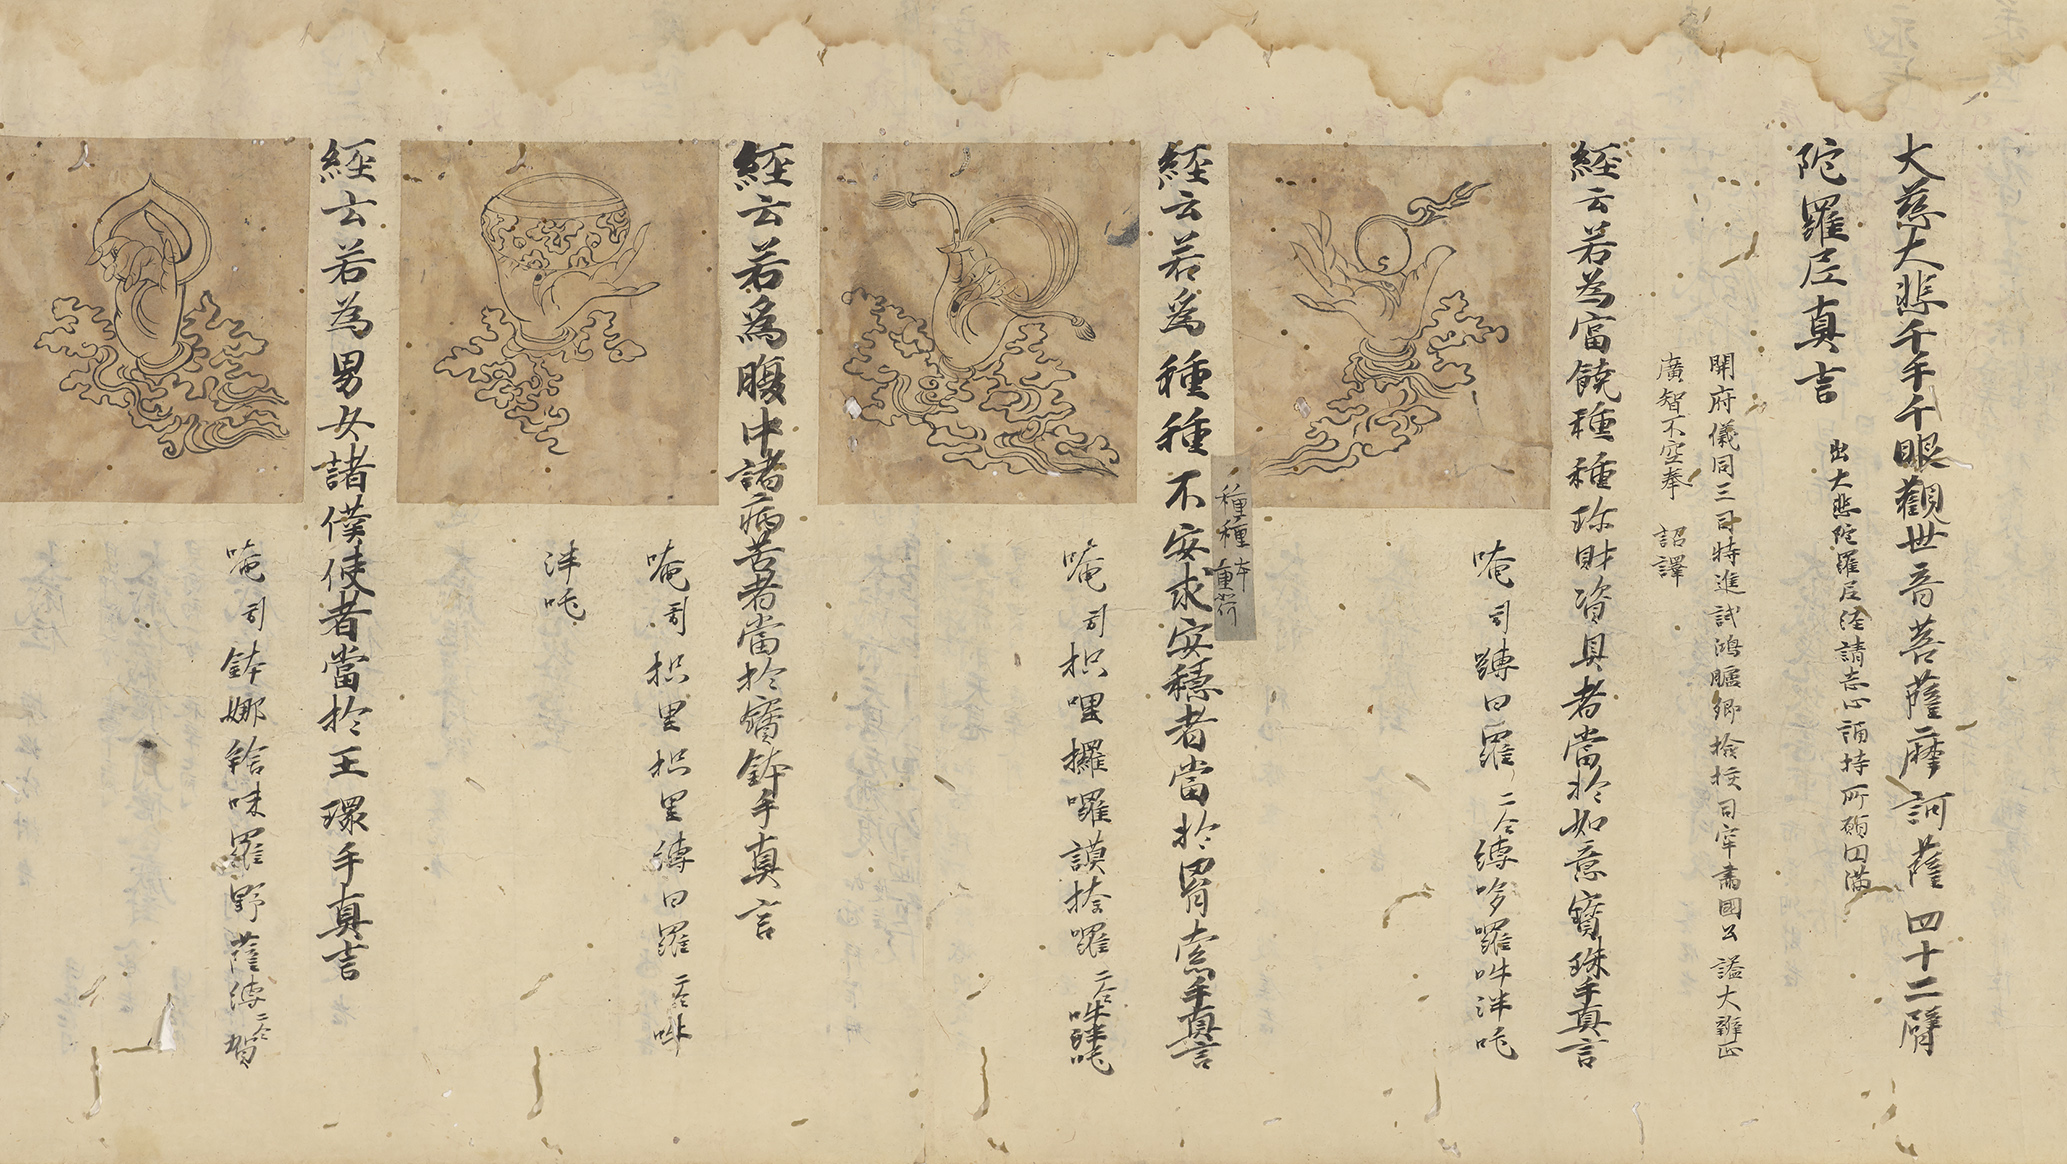 大慈大悲千手千眼觀世音菩薩摩訶薩四十二臂
陀羅尼真言 出大悲陀羅尼経請志心誦持所願円満
開府儀同三司特進試鴻臚卿撿挍司空肅國公謚大辦正
廣智不空奉 詔譯
經云若為富饒種種珎財資具者當於如意寶珠手真言
唵引 嚩日羅二合縛哆囉吽泮吒
種種本重荷
經云若爲種種不安求安穩者當於羂索手真言
唵引 枳哩攞囉謨捺囉二合吽泮吒
經云若爲腹中諸病苦者當於寶鉢手真言
唵引 枳里枳里縛日羅二合吽
泮吒
經云若為男女諸僕使者當於玉環手真言
唵引 鉢娜𤚥味羅野薩縛二合賀